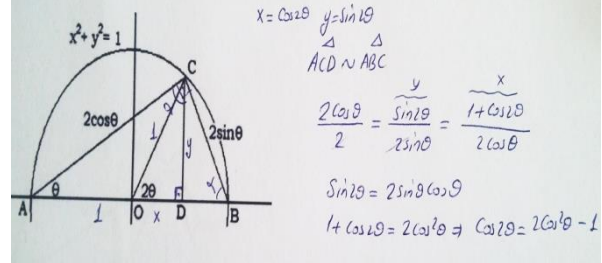 x²+y²=1
C
2cosθ
2
1
y
2sinθ
θ
2θ
α
A
O
D
B
1
x
x = Cos2θ y = Sin2θ
Δ Δ
ACD ~ ABC
y x
2Cosθ/2 = Sin2θ/2Sinθ = 1+Cos2θ/2Cosθ
Sin2θ = 2Sinθ Cosθ
1+Cos2θ = 2Cos²θ ⇒ Cos2θ = 2Cos²θ - 1